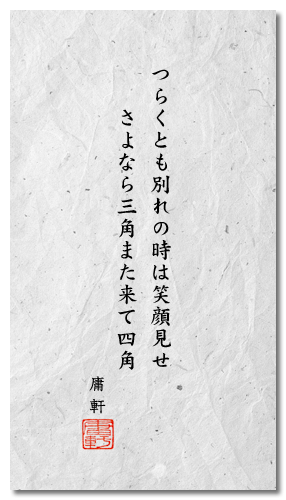 つらくとも別れの時は笑顔見せ
さよなら三角また来て四角
庸軒
庸軒